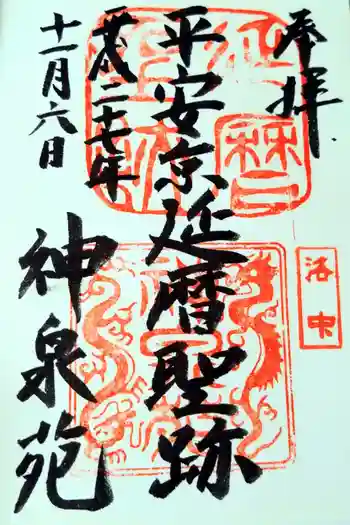 奉拝
洛中
平安京延暦聖跡
平成二十七年
十一月六日
神泉苑